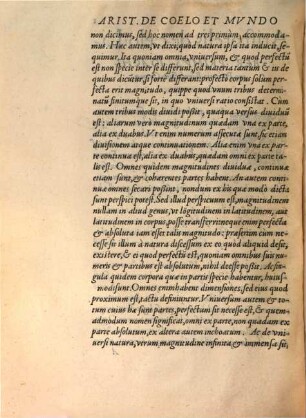 ARIST. DE COELO ET MVNDO
non dicimus, sed hoc nomen ad tres primum, accommoda-
mus. Hæc autem, vt dixi, quod natura ipsa ita inducit, sequi
quimur. Ita quoniam omnia, vniuersum, & quod perfectũ
est non specie inter se differunt, sed materia tantùm & in de
quibus dicũtur, si fortè differant: profectò corpus solùm per-
fecta erit magnitudo, quippe quod vnum tribus determina-
tum sinitumque sit, in quo vniuersi ratio consistat. Cùm
autem tribus modis diuidi possit, quaqua versùs diuiduũ
est; aliarum verò magnitudinum quædam vna ex parte,
alia ex duabus. Vt enim numerum assecuta sunt, sic etiam
diuisionem atque continuationem. Alia enim ex parte vna
continua est, alia ex duabus, quædam omni ex parte ta-
lis est. Omnes quidem magnitudines diuiduæ, continuæ
etiam sunt, & cohærentes partes habent. An autem conti-
nuæ omnes secari possint, nondum ex his quæ modò dicta
sunt perspici potest. Sed illud perspicuum est, magnitudinem
nullam in aliud genus, vt longitudinem in latitudinem, aut
latitudinem in corpus, posse transferri: neque enim perfecta
& absoluta iam esset talis magnitudo; præsertim cum neces-
se sit illum à natura discessum ex eo quod aliquid desit,
existere, & ei quod perfectũ est, quoniam omnibus suis nu-
meris & partibus est absolutum, nihil deesse possit. Ac sin-
gula quidem corpora quæ in partis specie habentur, huius-
modi sunt. Omnes enim habent dimensiones, sed eius quod
proximum est, tactu definiuntur. Vniuersum autem & to-
tum cuius hæ sunt partes, perfectum sit necesse est, & quem-
admodum nomen significat, omni ex parte, non quadam ex
parte absolutum, ex altera autem inchoatum. Ac de vni-
uersi natura, vtrum magnitudine infinita, & immensa sit,